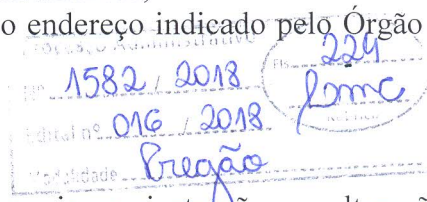 o endereço indicado pelo Órgão
Processo Administrativo
Nº 1582 / 2018 Fls. 224
Edital nº 016 / 2018
Modalidade Pregão